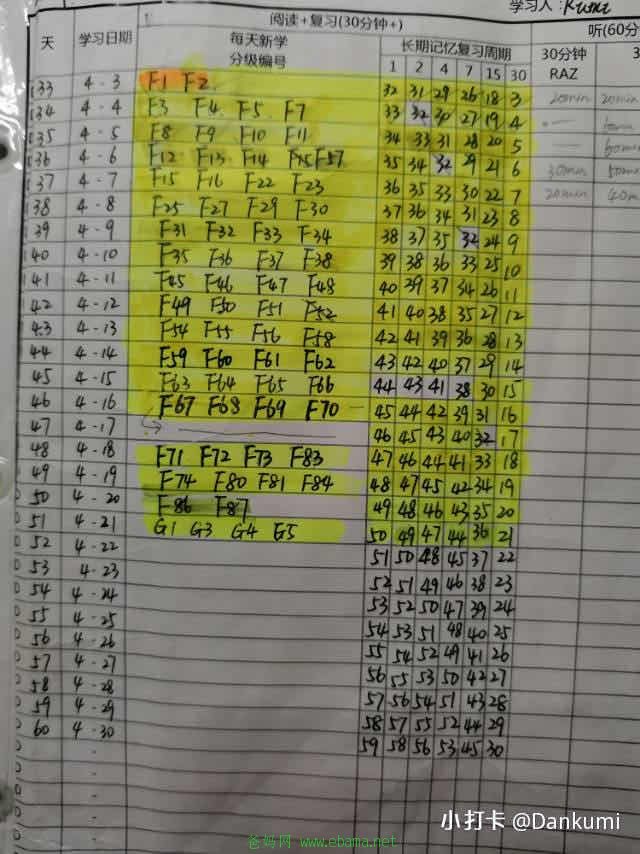 学习人: Kumi
阅读+复习(30分钟+)
听(60分
天 学习日期 每天新学 长期记忆复习周期
分级编号 1 2 4 7 15 30 30分钟
RAZ
33 4-3 F1 F2 32 31 29 26 18 3 20min 20min
34 4-4 F3 F4 F5 F7 33 32 30 27 19 4
35 4-5 F8 F9 F10 F11 34 33 31 28 20 5
36 4-6 F12 F13 F14 F15 F57 35 34 32 29 21 6 30min 50min
37 4-7 F15 F16 F22 F23 36 35 33 30 22 7 20min 40m
38 4-8 F25 F27 F29 F30 37 36 34 31 23 8
39 4-9 F31 F32 F33 F34 38 37 35 32 24 9
40 4-10 F35 F36 F37 F38 39 38 36 33 25 10
41 4-11 F45 F46 F47 F48 40 39 37 34 26 11
42 4-12 F49 F50 F51 F52 41 40 38 35 27 12
43 4-13 F54 F55 F56 F58 42 41 39 36 28 13
44 4-14 F59 F60 F61 F62 43 42 40 37 29 14
45 4-15 F63 F64 F65 F66 44 43 41 38 30 15
46 4-16 F67 F68 F69 F70 45 44 42 39 31 16
47 4-17 46 45 43 40 32 17
48 4-18 F71 F72 F73 F83 47 46 44 41 33 18
49 4-19 F74 F80 F81 F84 48 47 45 42 34 19
50 4-20 F86 F87 49 48 46 43 35 20
51 4-21 G1 G3 G4 G5 50 49 47 44 36 21
52 4-22 51 50 48 45 37 22
53 4-23 52 51 49 46 38 23
54 4-24 53 52 50 47 39 24
55 4-25 54 53 51 48 40 25
56 4-26 55 54 52 49 41 26
57 4-27 56 55 53 50 42 27
58 4-28 57 56 54 51 43 28
59 4-29 58 57 55 52 44 29
60 4-30 59 58 56 53 45 30
小打卡 @Dankumi
爸妈网 www.ebama.net